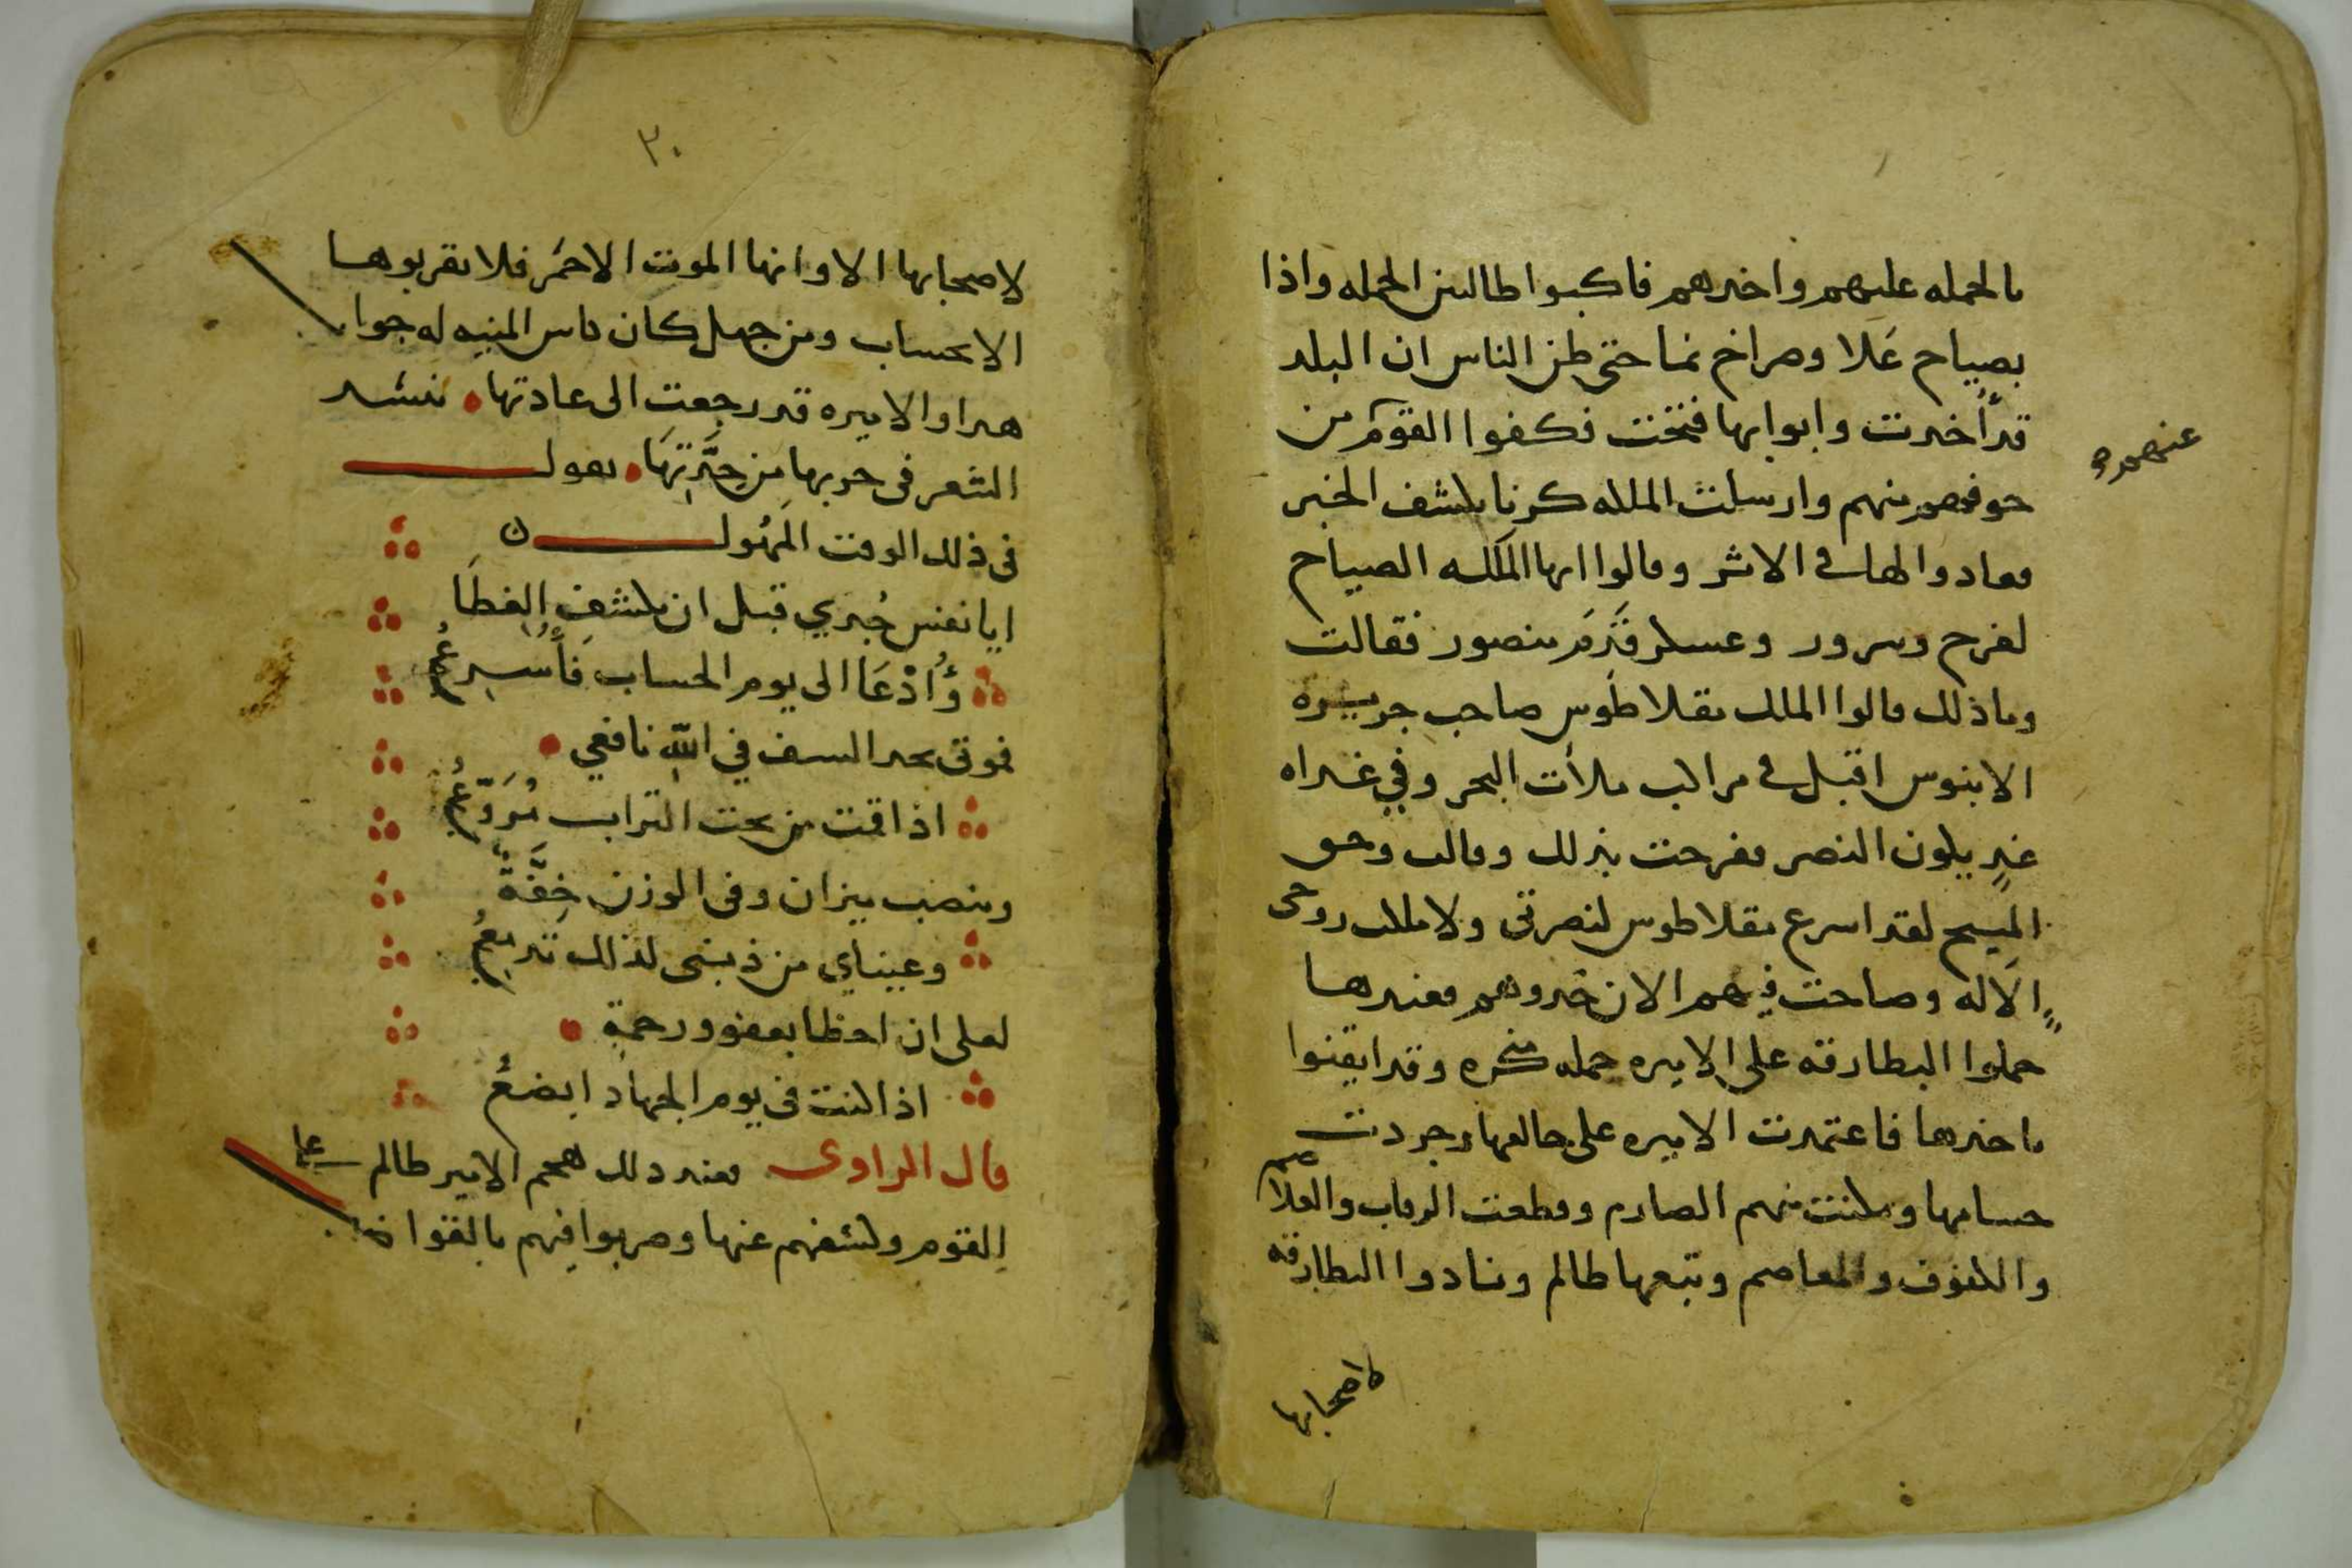 بالحمله عليهم واخدهم فاكبوا طالبين الحمله واذا
بصياح علا وصراخ نما حتى ظن الناس ان البلد
قد أخدت وابوابها فتحت فكفوا القوم من
عنهم
منهم وارسلت الملكه كرنا يكشف الخبر
فعادوا الها فى الاثر وقالوا ايها الملكه الصياح
لفرح وسرور وعسكر قدم منصور فقالت
وما ذلك قالوا الملك بقلاطوس صاحب جزيره
الابنوس اقبل فى مراكب ملأت البحر وفي غداه
غدٍ يكون النصر ففرحت بذلك وقالت وحق
المسيح لقد اسرع بقلاطوس لنصرتى ولاملك روحى
الاله وصاحت فيهم الان خدوهم فعندها
حملوا البطارقه على الاميره حمله منكره وقد ايقنوا
باخدها فاعتمدت الاميره على خالقها وجردت
حسامها ومكنت منهم الصارم وقطعت الرقاب والغلاصم
والكفوف والمعاصم وتبعها ظالم ونادوا البطارقه
لاصحابها
٣٠
لاصحابها الا وانها الموت الاحمر فلا تقربوها
الا بحساب ومن جهل كان كاس المنيه له جواب
هدا والاميره قد رجعت الى عادتها تنشد
الشعر فى حربها من حدتها يقول
فى ذلك الوقت المهول
ايا نفس جدي قبل ان يكشف الغطا
وأدعا الى يوم الحساب فأسرع
فموتى بحد السيف في الله نافعي
اذا قمت من تحت التراب مروع
وينصب ميزان وفى الوزن خفة
وعيناي من ذنبى لذلك تدمع
لعلى ان احظا بعفو ورحمة
اذا كنت فى يوم الجهاد ابضع
قال الراوى فعند دلك هجم الامير ظالم على
القوم وكشفهم عنها وضربوا فيهم بالقواضب